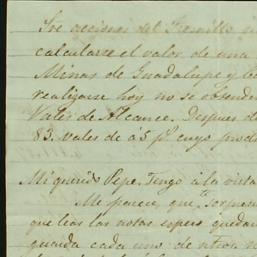 Sre acciones del Fresnillo
calcularse el valor de una
Minas de Guadalupe y
realizarse hoy no se
Vales de Alcance. Despues de
83. vales de a 5 p.s cuyo prod
Mi querido Pepe. Tengo á la vista
Me parece, que
que leas las notas espero quedar
guarda cada uno de